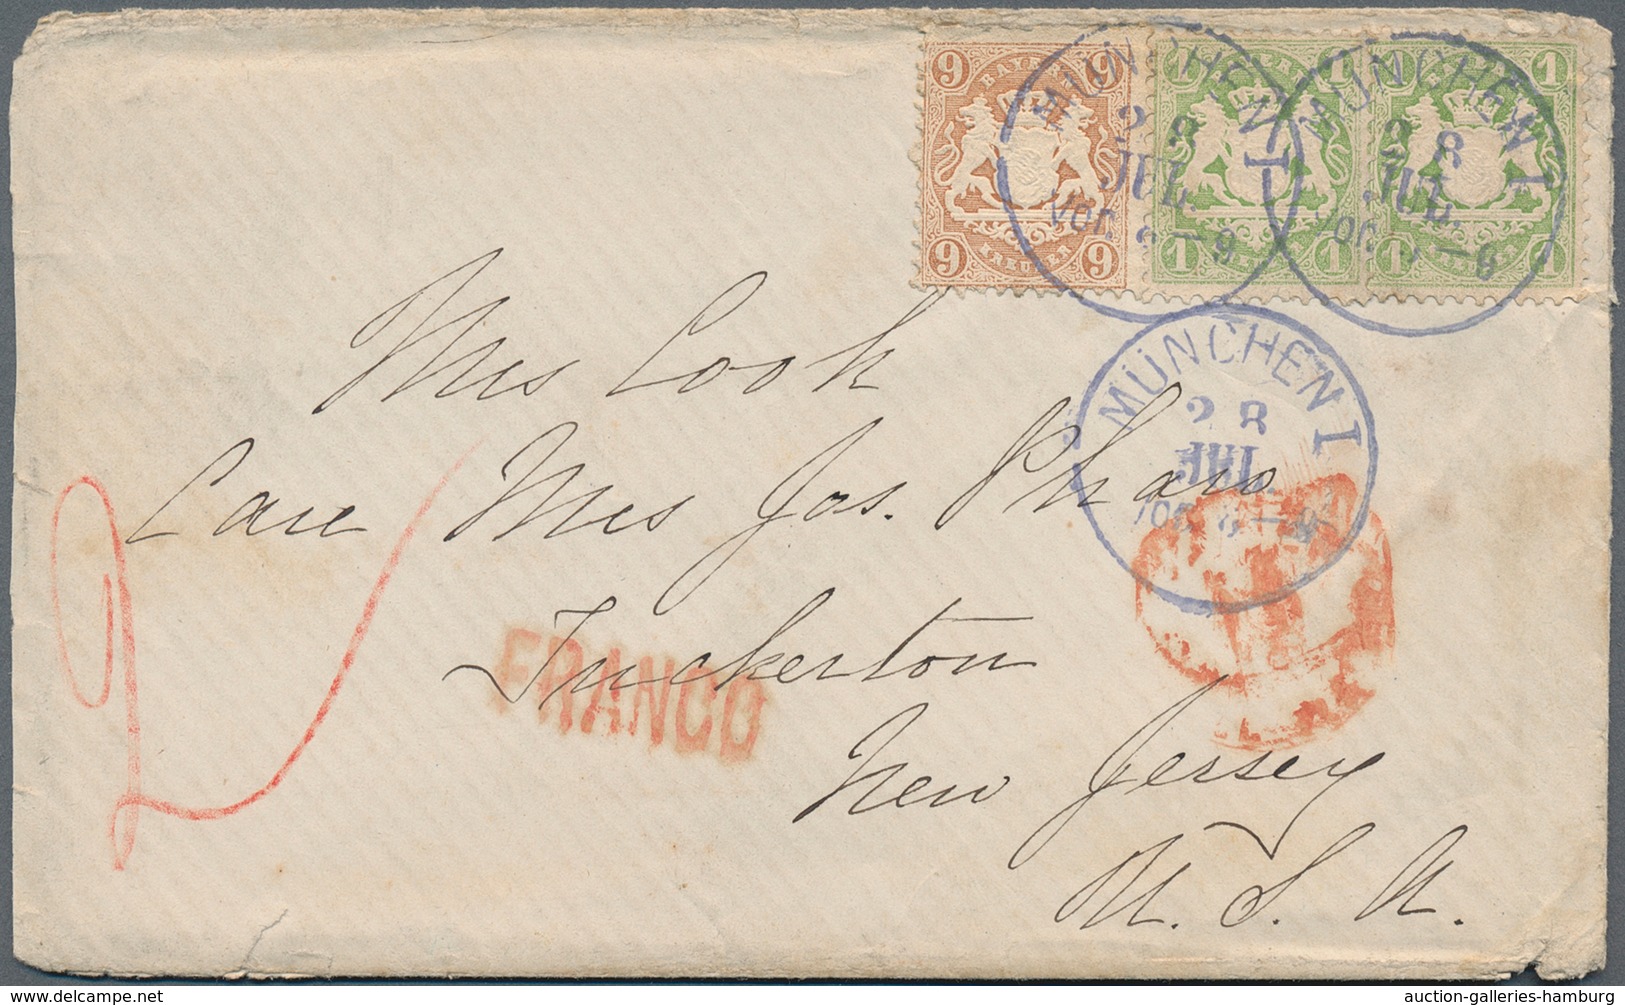 9 9
BAYERN
9 KREUZER 9
1 1
1 1
1 1
1 1
MÜNCHEN I
28
JUL.
Vor. 8-9
MÜNCHEN I
28
JUL.
Vor. 8-9
MÜNCHEN I
28
JUL.
Vor. 8-9
Mrs Cook
Care Mrs Jos. Pharo
Tuckerton
New Jersey
U. S. A.
FRANCO
2
www.delcampe.net
auction-galleries-hamburg